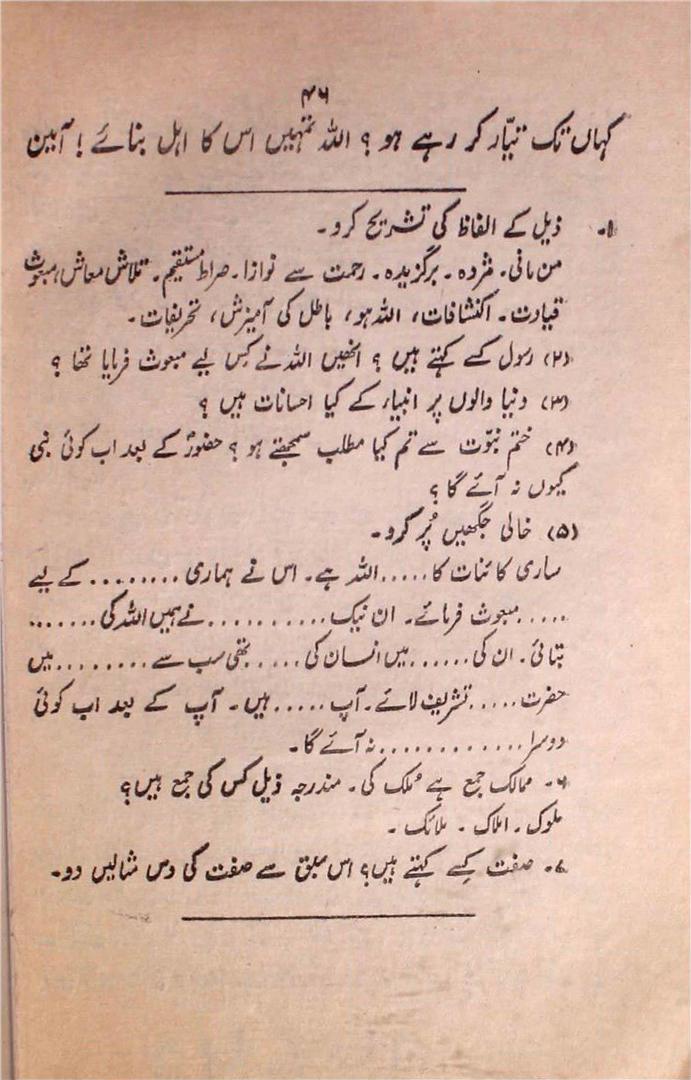 ۴۶
کہاں تک تیّار کر رہے ہو؟ اللہ تمہیں اس کا اہل بنائے! آمین
۱۔ ذیل کے الفاظ کی تشریح کرو۔
من مانی۔ مژدہ۔ برگزیدہ۔ رحمت سے نوازا۔ صراط مستقیم۔ تلاش معاش، مبعوث
قیادت۔ اکتشافات، اللہ ہو، باطل کی آمیزش، تحریفات۔
(۲) رسول کسے کہتے ہیں؟ انھیں اللہ نے کِس لیے مبعوث فرمایا تھا؟
(۳) دنیا والوں پر انبیاء کے کیا احسانات ہیں؟
(۴) ختم نبوّت سے تم کیا مطلب سمجھتے ہو؟ حضورؐ کے بعد اب کوئی نبی
کیوں نہ آئے گا؟
(۵) خالی جگھیں پُر کرو۔
ساری کائنات کا.....اللہ ہے۔ اس نے ہماری ........ کے لیے
..... مبعوث فرمائے۔ ان نیک .......... نے ہمیں اللہ کی .......
بتائی۔ ان کی ...... میں انسان کی .... تھی سب سے ........ میں
حضرت ..... تشریف لائے۔ آپ ..... ہیں۔ آپ کے بعد اب کوئی
دوسرا ............ نہ آئے گا۔
۶۔ ممالک جمع ہے مُلک کی۔ مندرجہ ذیل کس کی جمع ہیں؟
ملوک۔ املاک ۔ ملائک ۔
۷۔ صفت کِسے کہتے ہیں؟ اس سبق سے صفت کی دس مثالیں دو۔